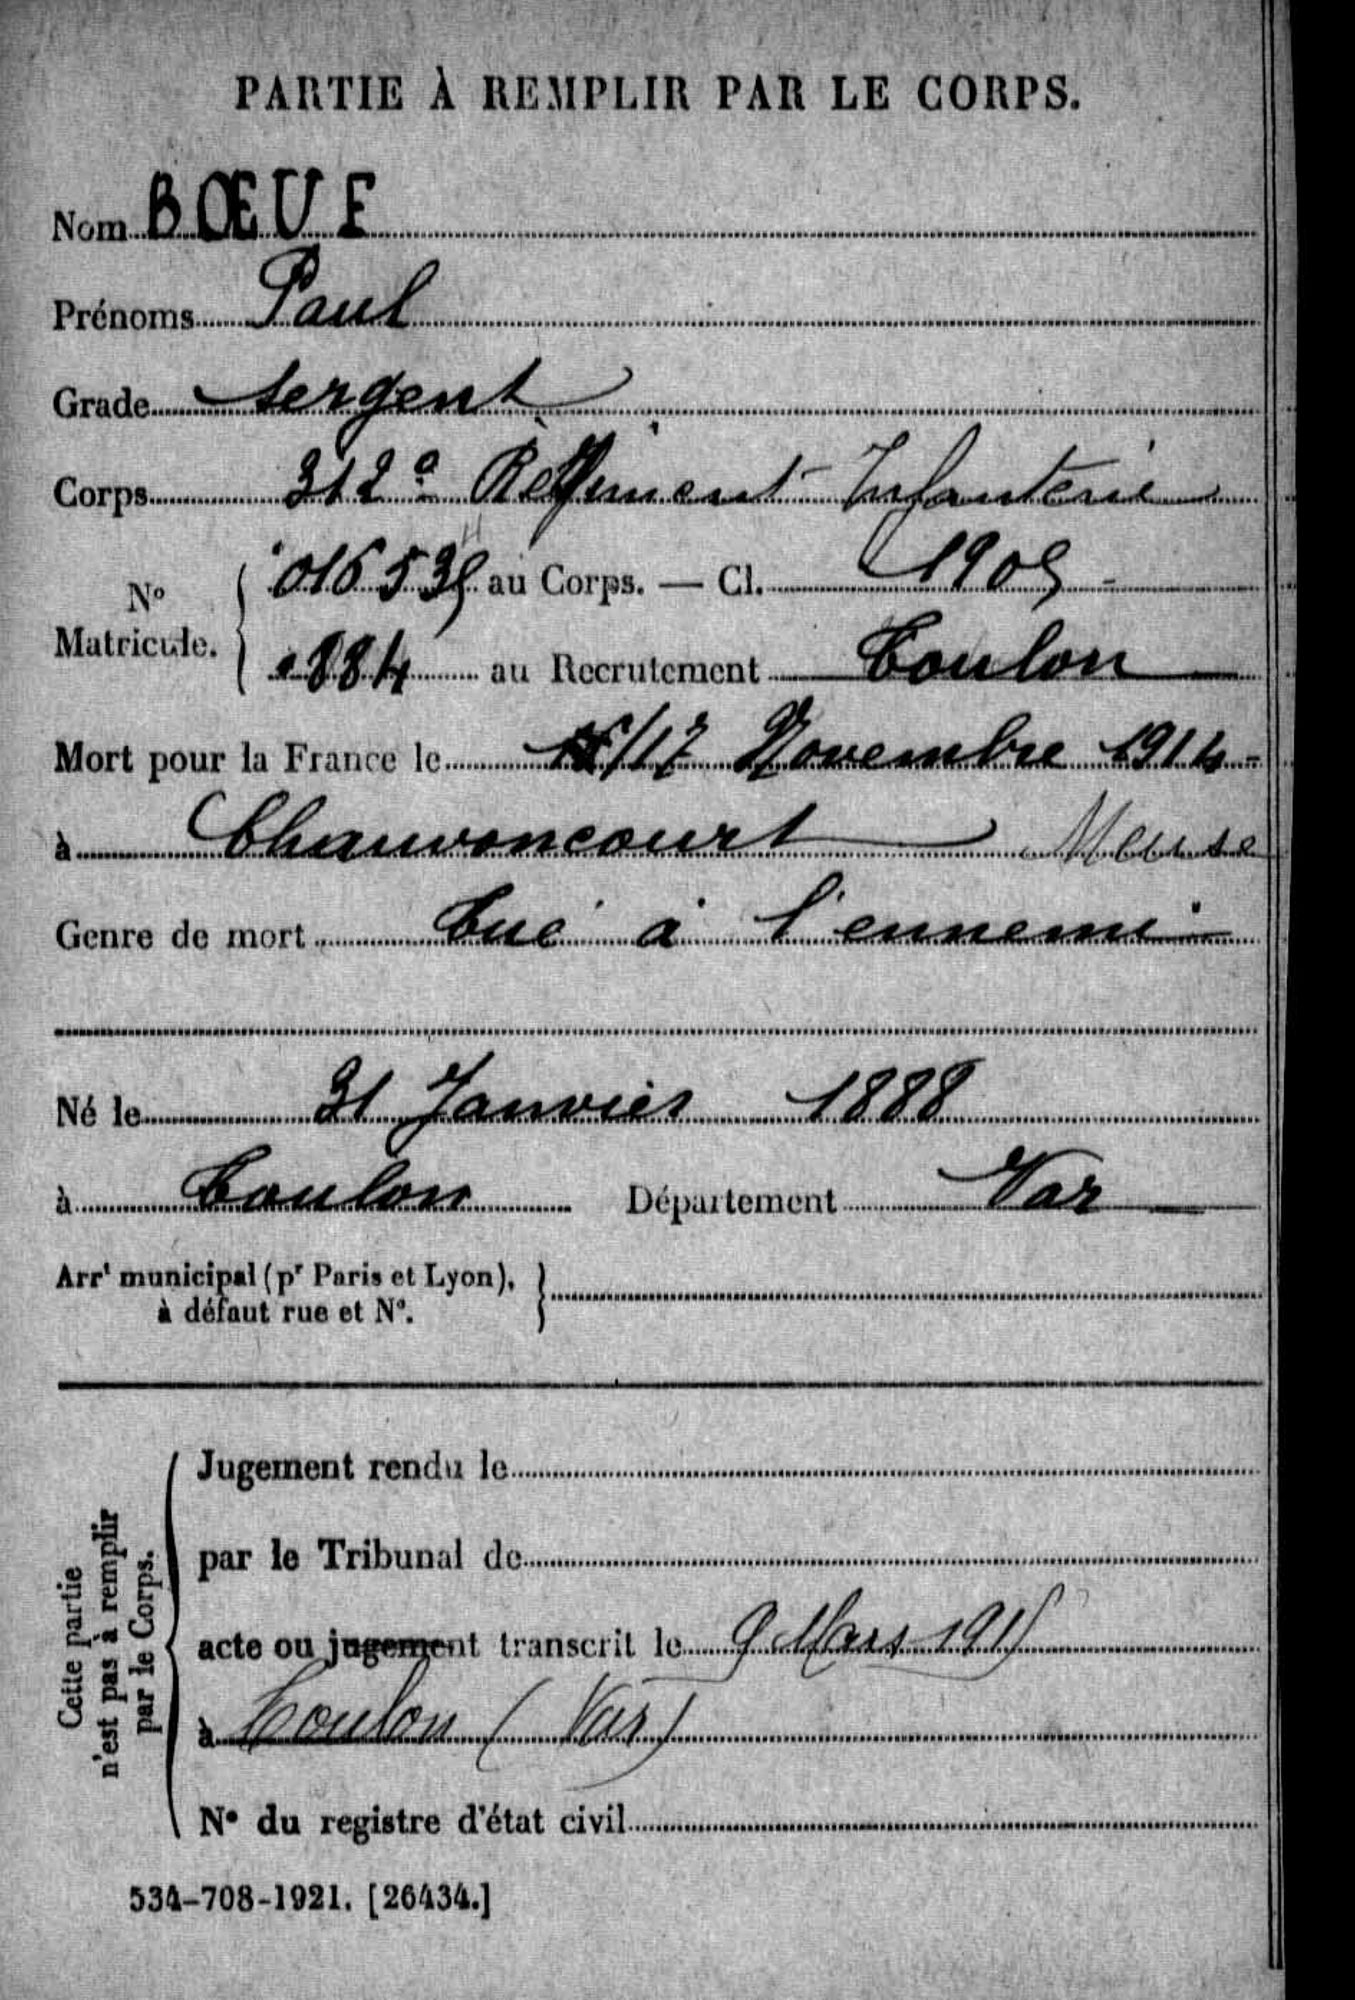 PARTIE À REMPLIR PAR LE CORPS.
Nom BŒUF
Prénoms Paul
Grade Sergent
Corps 312e Régiment Infanterie
No Matricule. 016535 au Corps. — Cl. 1908
884 au Recrutement Toulon
Mort pour la France le /17 Novembre 1914
à Chauvoncourt Meuse
Genre de mort Tué à l'ennemi
Né le 31 Janvier 1888
à Toulon Département Var
Arrt municipal (pr Paris et Lyon),
à défaut rue et No.
Cette partie
n'est pas à remplir
par le Corps.
Jugement rendu le
par le Tribunal de
acte ou jugement transcrit le 9 Mars 1915
à Toulon (Var)
No du registre d'état civil
534-708-1921. [26434.]